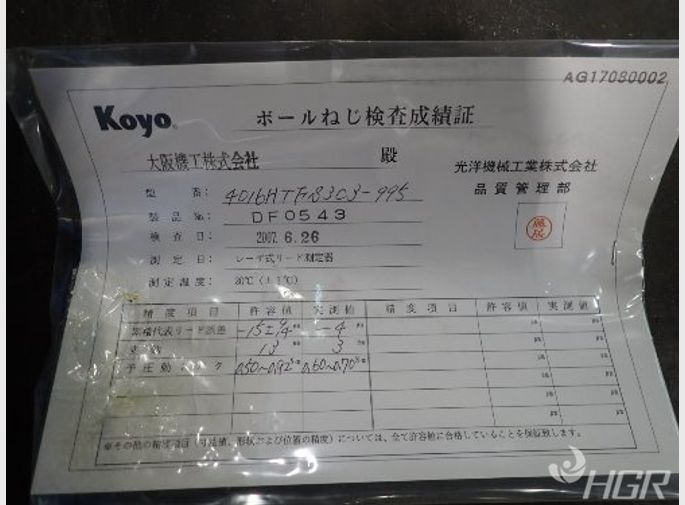 AG17080002
Koyo
ボールねじ検査成績証
大阪機工株式会社 殿
光洋機械工業株式会社
品質管理部
型 番:
製品 №: DF0543
検査日: 2007. 6.26
測定日: レーザ式リード測定器
測定温度: 20℃(±1℃)
精度項目 許容値 実測値 精度項目 許容値 実測値
累積代表リード誤差 -4
変動 13 3
予圧動トルク 0.50~0.92 0.60~0.70
※その他の精度項目(寸法値、形状および位置の精度)については、全て許容値に合格していることを保証致します。
HGR